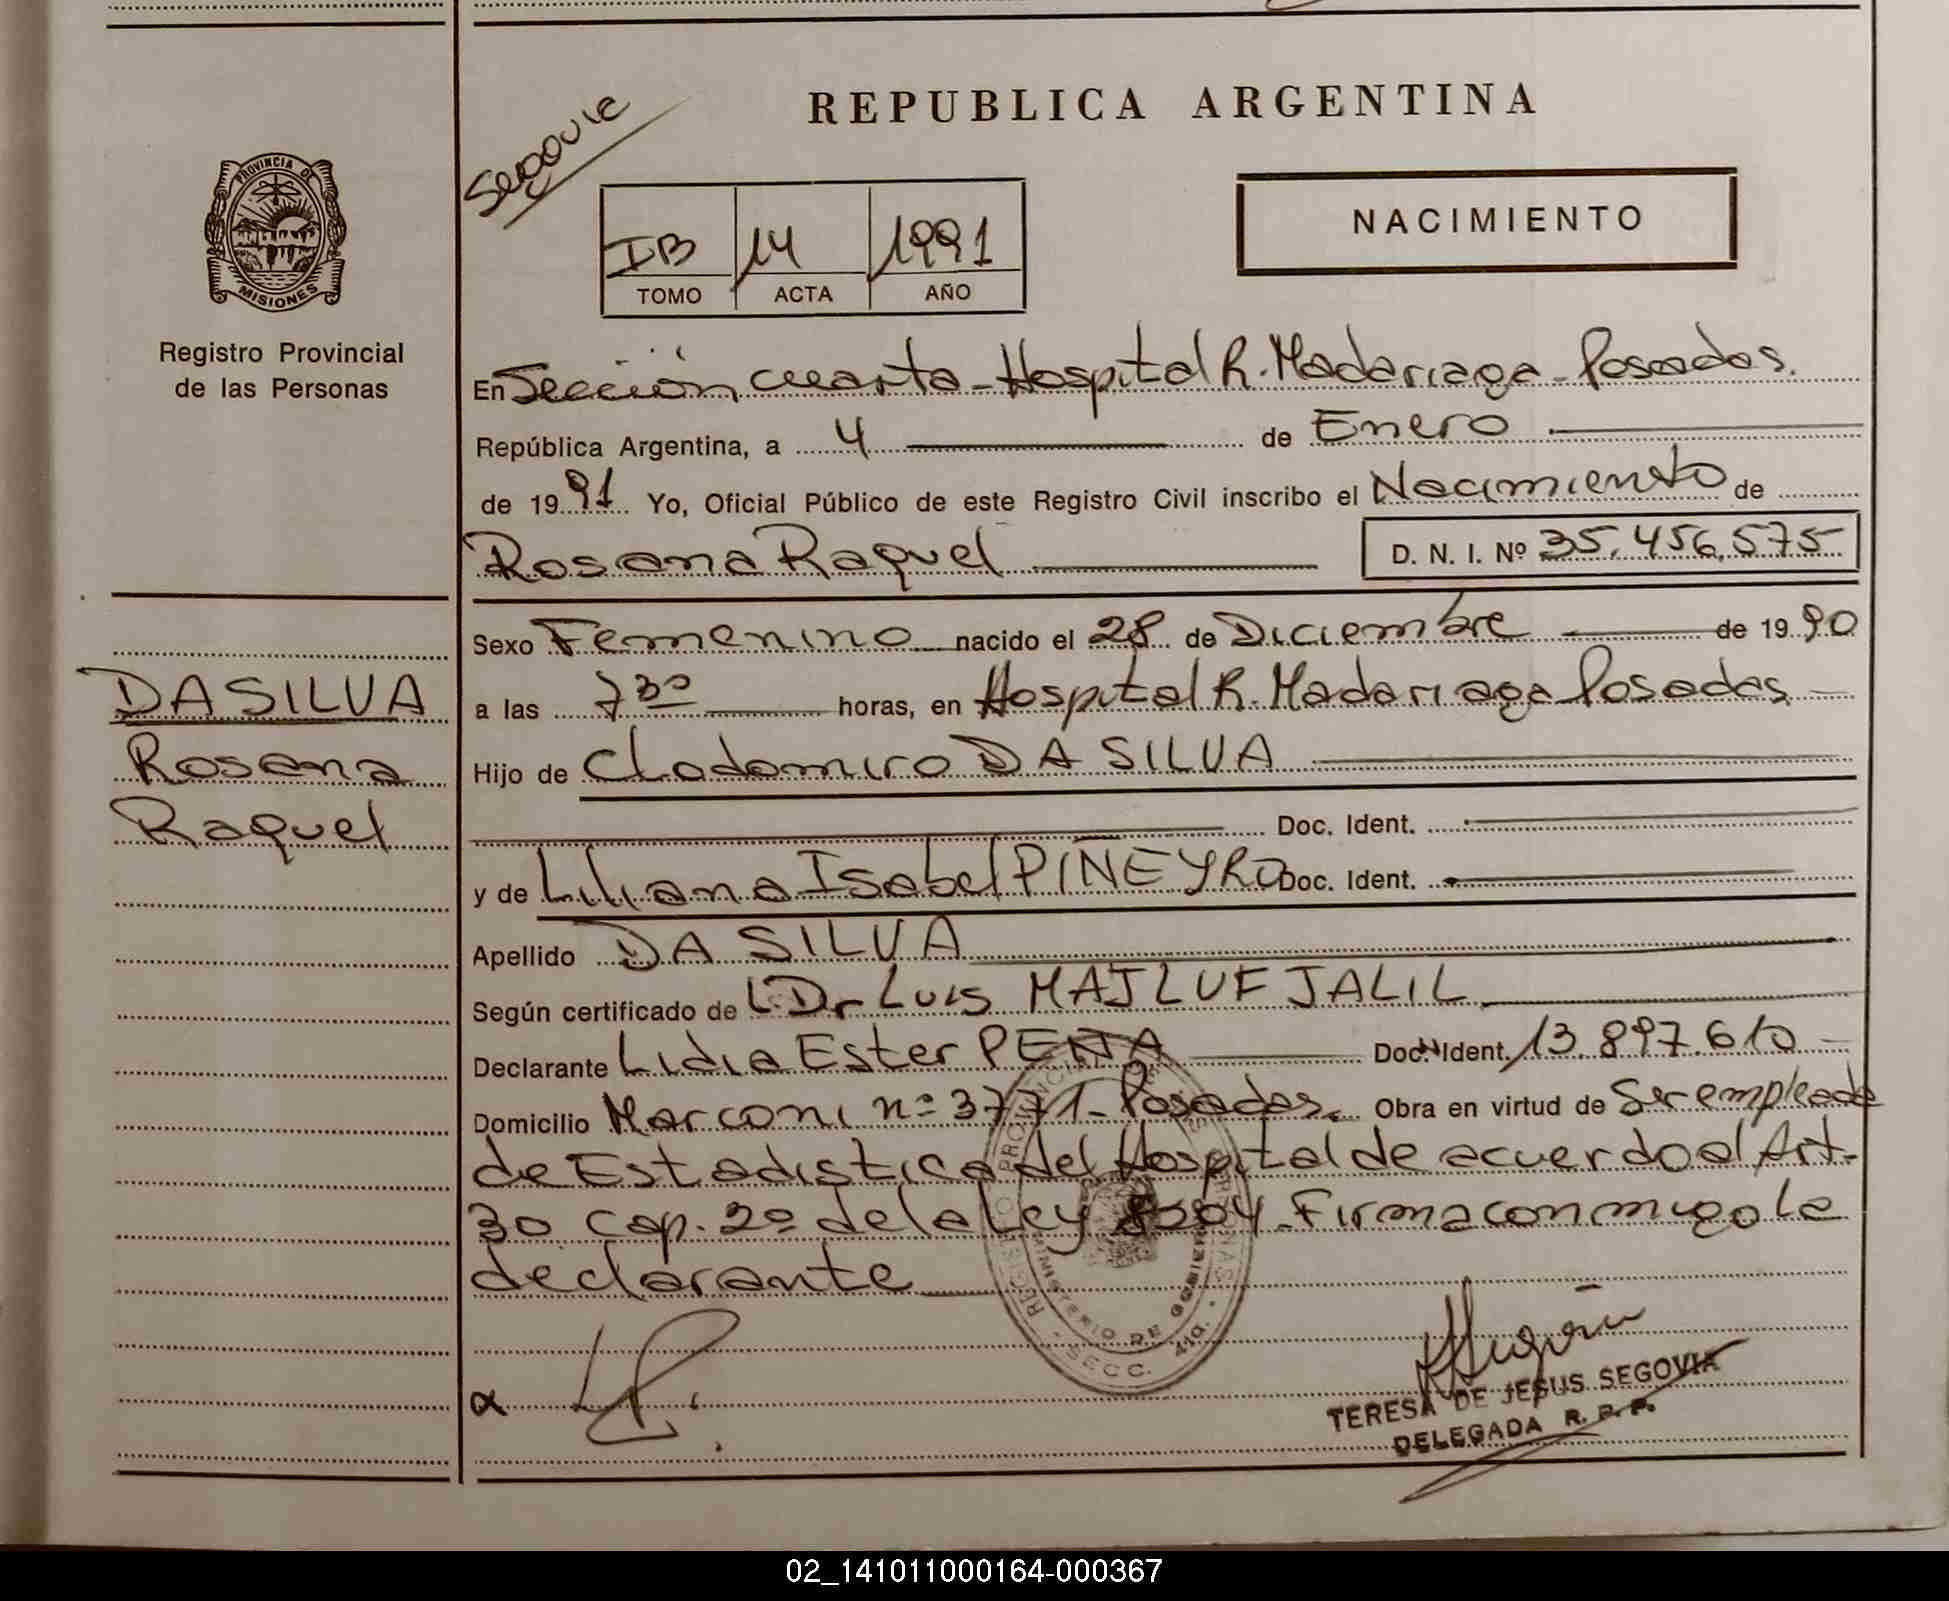 REPUBLICA ARGENTINA
PROVINCIA DE
MISIONES
Registro Provincial
de las Personas
IB 14 1991
TOMO ACTA AÑO
NACIMIENTO
En Sección cuarta - Hospital R. Madariaga - Posadas.
República Argentina, a 4 de Enero
de 1991 Yo, Oficial Público de este Registro Civil inscribo el Nacimiento de
Rosana Raquel D. N. I. Nº 35.456.575
Sexo Femenino nacido el 28 de Diciembre de 1990
a las 7 30 horas, en Hospital R. Madariaga Posadas
Hijo de Clodomiro DA SILVA
Doc. Ident.
y de Liliana Isabel PIÑEYRO Doc. Ident.
Apellido DA SILVA
Según certificado de Dr Luis MAJLUF JALIL
Declarante Lidia Ester PEÑA Doc. Ident. 13.897.610
Domicilio Marconi nº 3771 - Posadas. Obra en virtud de Ser empleada
de Estadistica del Hospital de acuerdo al Art.
30 cap. 2º de la Ley 8204 - Firma conmigo la
declarante
DA SILVA
Rosana
Raquel
MINISTERIO DE GOBIERNO
SECC. 4ta.
TERESA DE JESUS SEGOVIA
DELEGADA R. P. P.
02_141011000164-000367